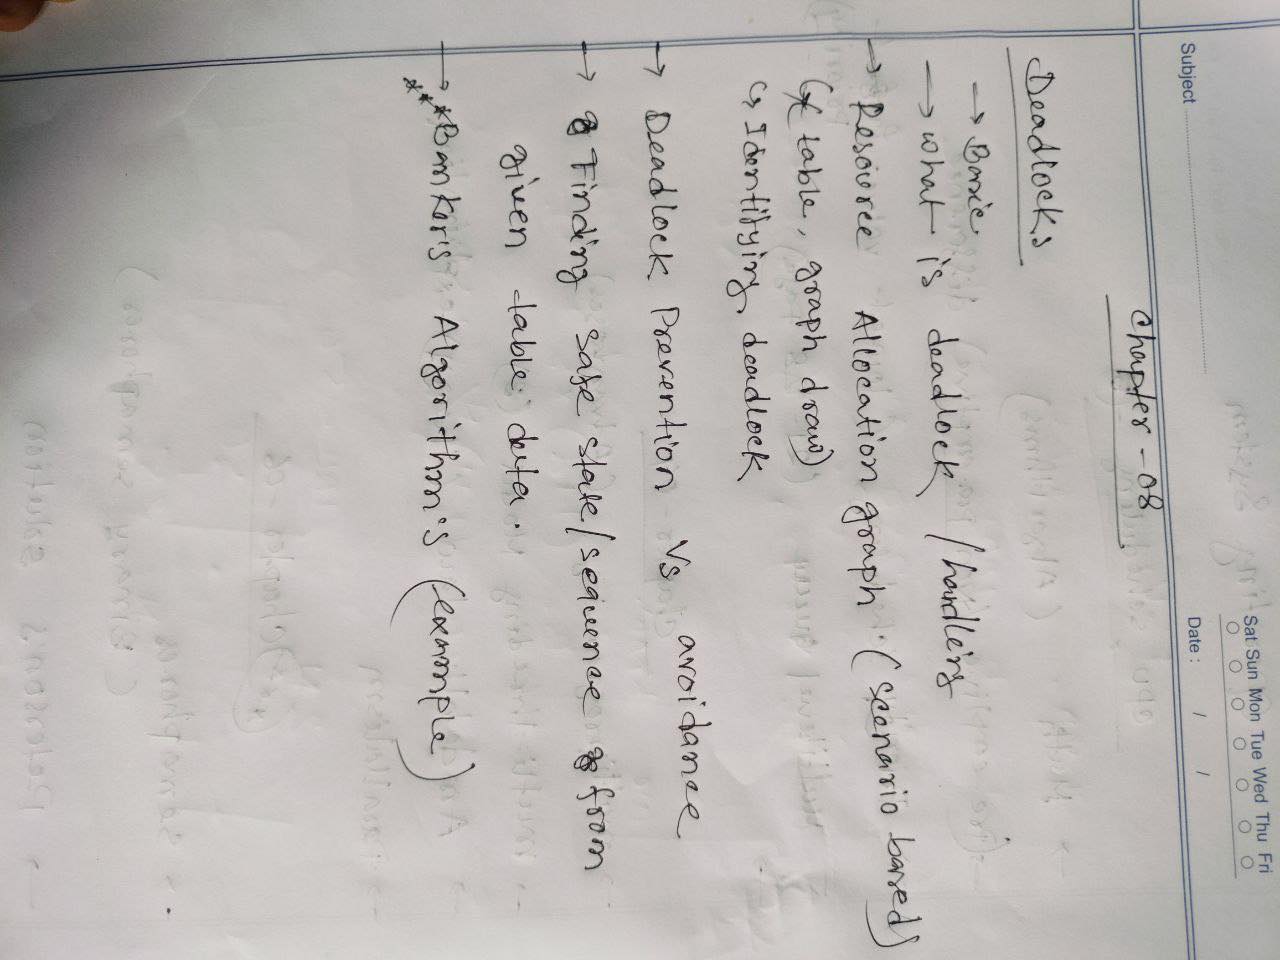 Subject
Sat Sun Mon Tue Wed Thu Fri
Date : / /
Chapter - 08
Deadlocks
→ Basic
→ what is deadlock / handling
→ Resource Allocation graph. (scenario based)
(table, graph draw)
↳ Identifying deadlock
→ Deadlock Prevention Vs avoidance
→ Finding safe state/sequence from
given table data.
→ ***Bankers Algorithm's (example)